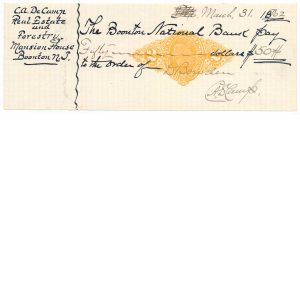 C.A. DeCamp
Real Estate
and
Forestry,
Mansion House
Boonton N.J.
March, 31. 18
The Boonton National Bank pay
Fifty dollars $50
to the order of Bowden
DeCamp.